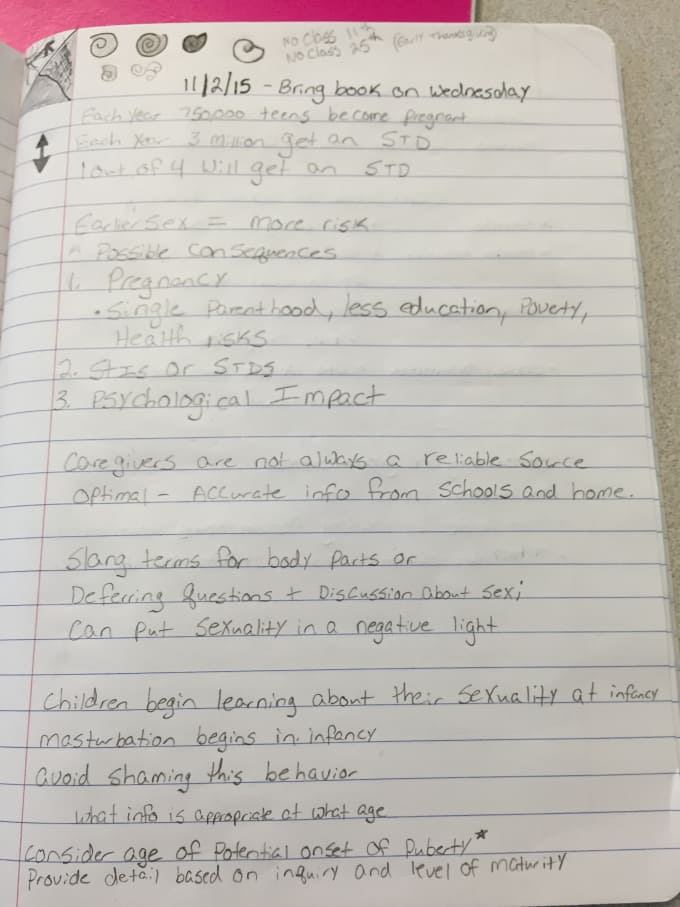 No Class 11th
No Class 25th (Early Thanksgiving)
11/2/15 - Bring book on Wednesday
Each Year 750,000 teens become pregnant
Each Year 3 million get an STD
1 out of 4 will get an STD
Earlier Sex = more risk
Possible Consequences
1. Pregnancy
• Single Parenthood, less education, Poverty,
Health risks
2. STIs or STDs
3. Psychological Impact
Caregivers are not always a reliable source
Optimal - Accurate info from schools and home.
Slang terms for body parts or
Deferring Questions + Discussion about sex;
Can put sexuality in a negative light
Children begin learning about their sexuality at infancy
masturbation begins in infancy
avoid shaming this behavior
What info is appropriate at what age
Consider age of Potential onset of Puberty*
Provide detail based on inquiry and level of maturity